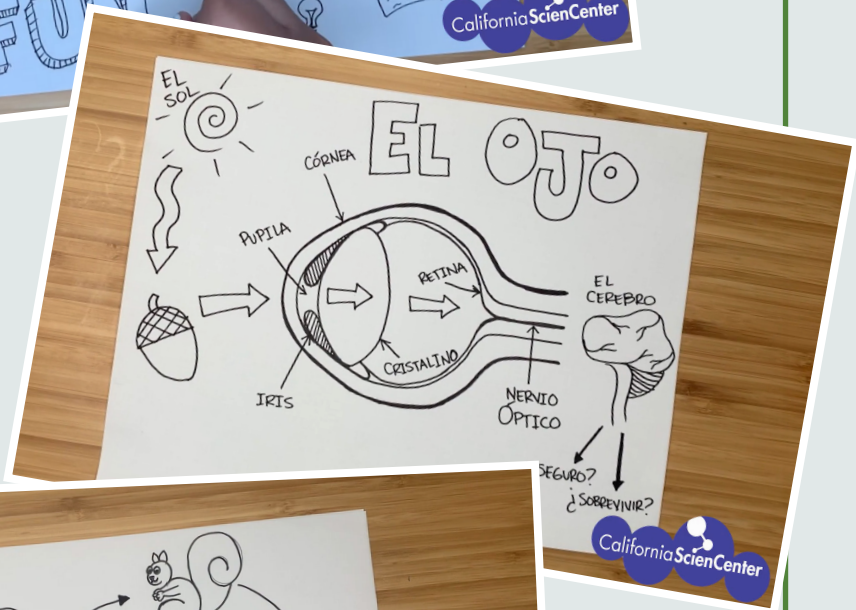 California ScienCenter
EL
SOL
EL OJO
CÓRNEA
PUPILA
RETINA
EL
CEREBRO
CRISTALINO
IRIS
NERVIO
ÓPTICO
SEGURO?
¿SOBREVIVIR?
California ScienCenter